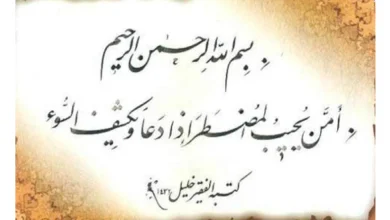 بِسْمِ اللهِ الرحمن الرحيم
أمّن يُجيبُ المُضطَرَ إذا دَعَا وَيَكشِفُ السُّوء
كتبه الفقير خليل ١٤٢١